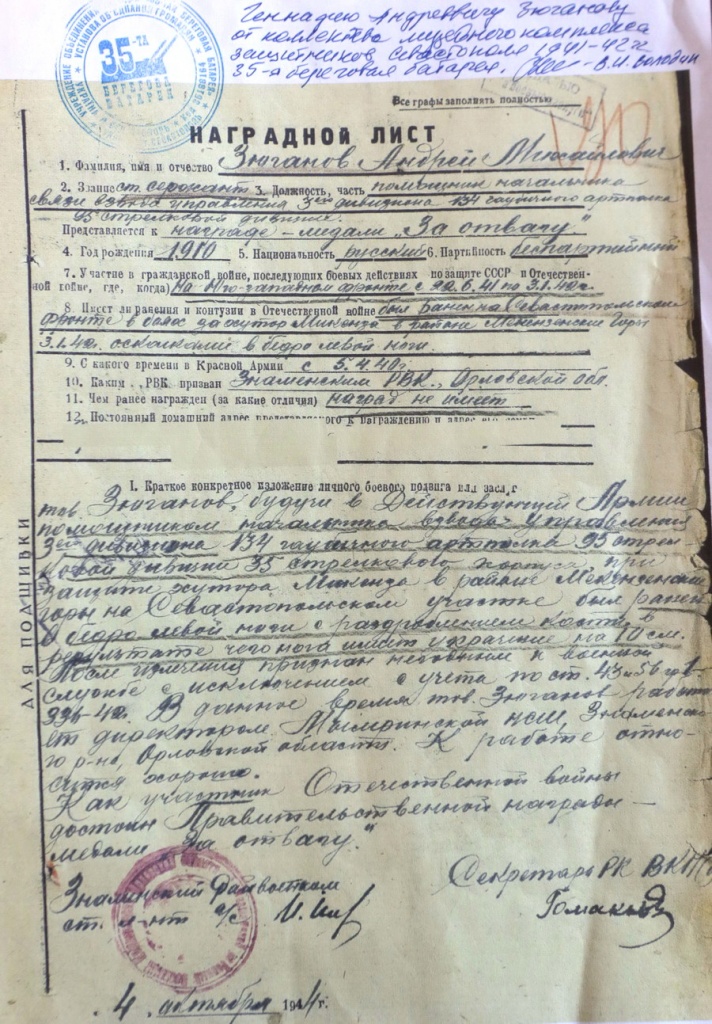 Геннадию Андреевичу Зюганову
от коллектива музейного комплекса
защитников Севастополя 1941-42 г.
35-я береговая батарея. В.И. Володин
35-ТА
БЕРЕГОВА
БАТАРЕЯ
Все графы заполнять полностью
НАГРАДНОЙ ЛИСТ
1. Фамилия, имя и отчество Зюганов Андрей Михайлович
2. Звание ст. сержант 3. Должность, часть помощник начальника
связи взвода управления 3го дивизиона 134 гаубичного артполка
95 стрелковой дивизии.
Представляется к награде - медали „За отвагу"
4. Год рождения 1910 5. Национальность русский 6. Партийность беспартийный
7. Участие в гражданской войне, последующих боевых действиях по защите СССР и Отечествен-
ной войне, где, когда) На Юго-западном фронте с 22.6.41 по 3.1.42г.
8. Имеет ли ранения и контузии в Отечественной войне был ранен на Севастопольском
фронте в боях за хутор Микензи в районе Мекензиевы Горы
3.1.42. осколками в бедро левой ноги.
9. С какого времени в Красной Армии с 5.4.40г
10. Каким РВК призван Знаменским РВК, Орловской обл.
11. Чем ранее награжден (за какие отличия) наград не имеет
12. Постоянный домашний адрес представляемого к награждению и адрес его
I. Краткое конкретное изложение личного боевого подвига или заслуг
тов. Зюганов, будучи в Действующей Армии
помощником начальника взвода управления
3го дивизиона 134 гаубичного артполка 95 стрел-
ковой дивизии 35 стрелкового корпуса при
защите хутора Микензи в районе Мекензиевы
горы на Севастопольском участке был ранен
в бедро левой ноги с раздроблением кости, в
результате чего нога имеет укорочение на 10 см.
После излечения признан негодным к военной
службе с исключением с учета по ст. 43
336-42г. В данное время тов. Зюганов работа-
ет директором Мымринской НСШ, Знаменско-
го р-на, Орловской области. К работе отно-
сится хорошо.
Как участник Отечественной войны
достоин Правительственной награды -
медали „За отвагу."
ДЛЯ ПОДШИВКИ
Знаменский Райвоенком
ст. л-нт а/с
Секретарь РК ВКП(б)
4 октября 1944 г.